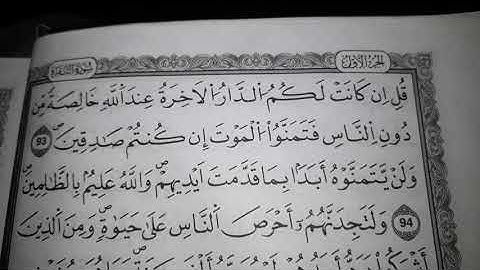 الجزء الأول
سورة البقرة
قُلِ اِن كَانَتْ لَكُمُ اُلدَّارُ اُلَاخِرَةُ عِندَ اَللَّهِ خَالِصَةً مِّن
دُونِ اِلنَّاسِ فَتَمَنَّوُاْ اُلْمَوْتَ إِن كُنتُمْ صَادِقِينَ 93
وَلَنْ يَّتَمَنَّوْهُ أَبَداَۢ بِمَا قَدَّمَتَ اَيْدِيهِمْ وَاللَّهُ عَلِيمُۢ بِالظَّالِمِينَ
94 وَلَتَجِدَنَّهُمُۥ أَحْرَصَ اَلنَّاسِ عَلَىٰ حَيَوٰةٖ وَمِنَ اَلذِينَ